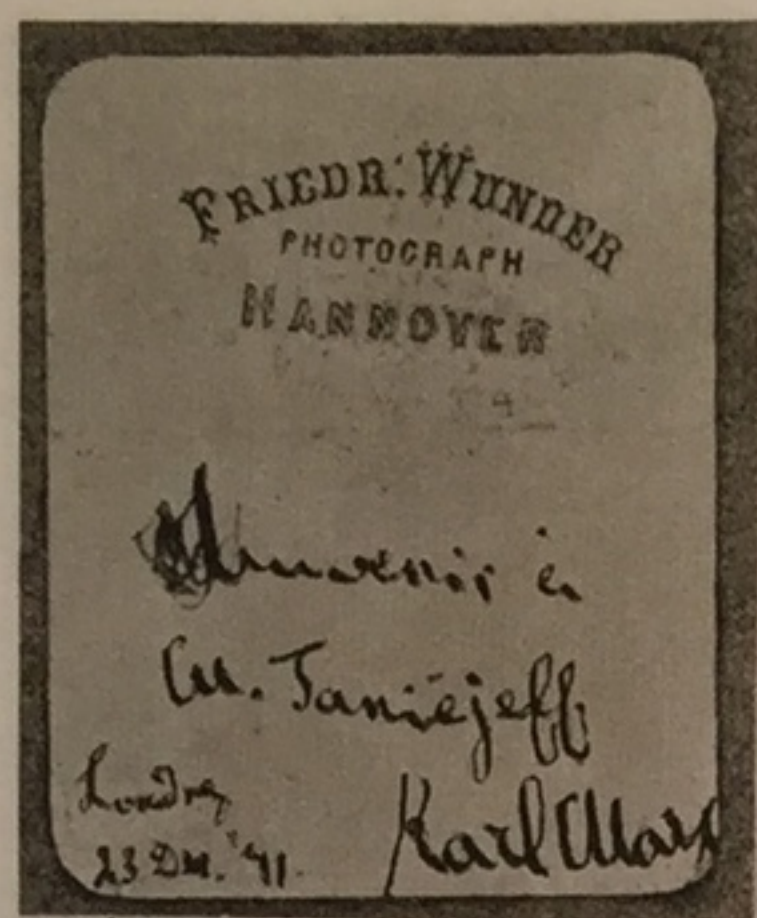 FRIEDR. WUNDER
PHOTOGRAPH
HANNOVER
Souvenir à
M. Taniéjeff
Londres
Karl Marx